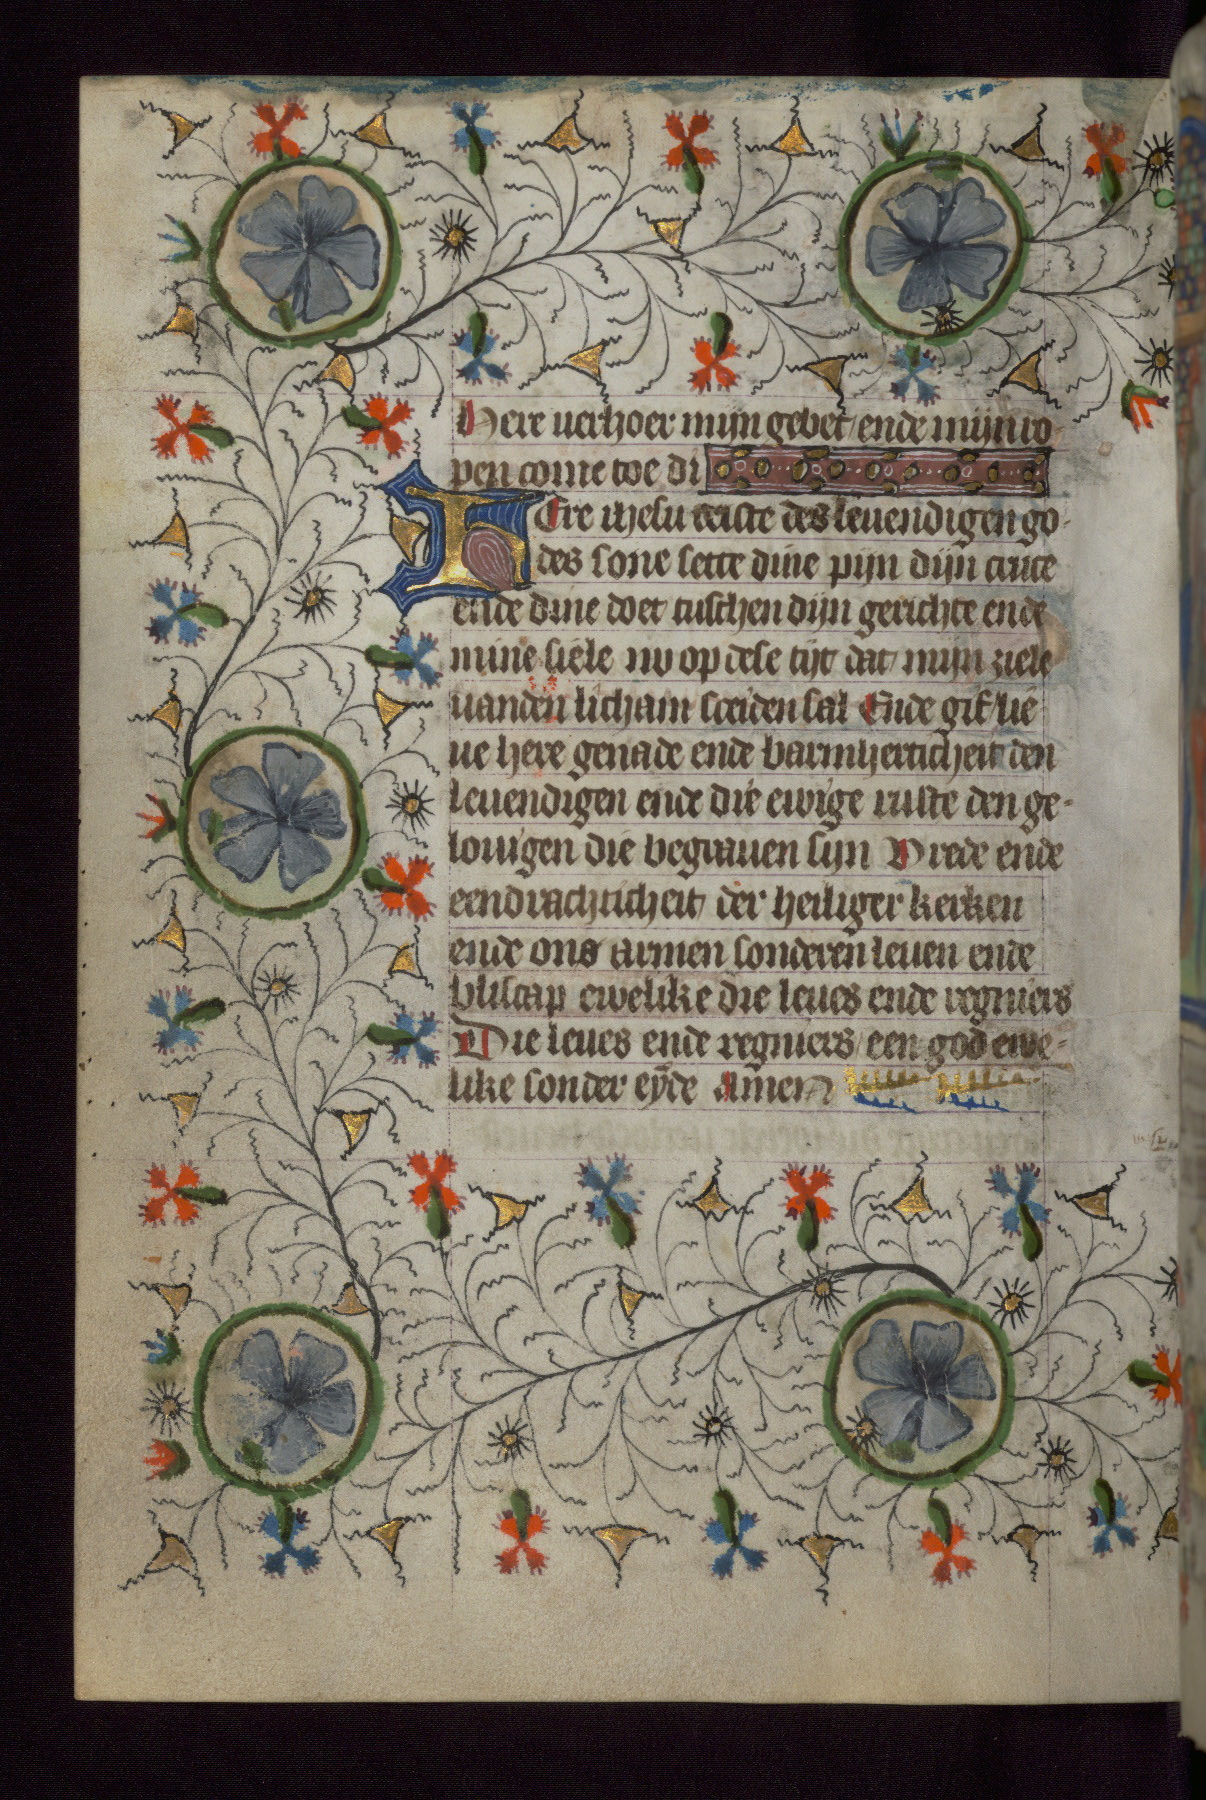 Here verhoer mijn gebet ende mijn ro-
pen come toe di
HEre ihesu criste des leuendigen go-
des sone sette dine pijn dijn cruce
ende dine doet tuschen dijn gerichte ende
mine siele nv op dese tijt dat mijn ziele
vanden licham sceiden sal Ende gif lie
ue here genade ende barmherticheit den
leuendigen ende die ewige ruste den ge-
louigen die begrauen sijn Vrede ende
eendrachticheit der heiliger kerken
ende ons armen sonderen leuen ende
bliscap ewelike die leues ende regniers
Die leues ende regniers een god ewe-
like sonder eyde Amen